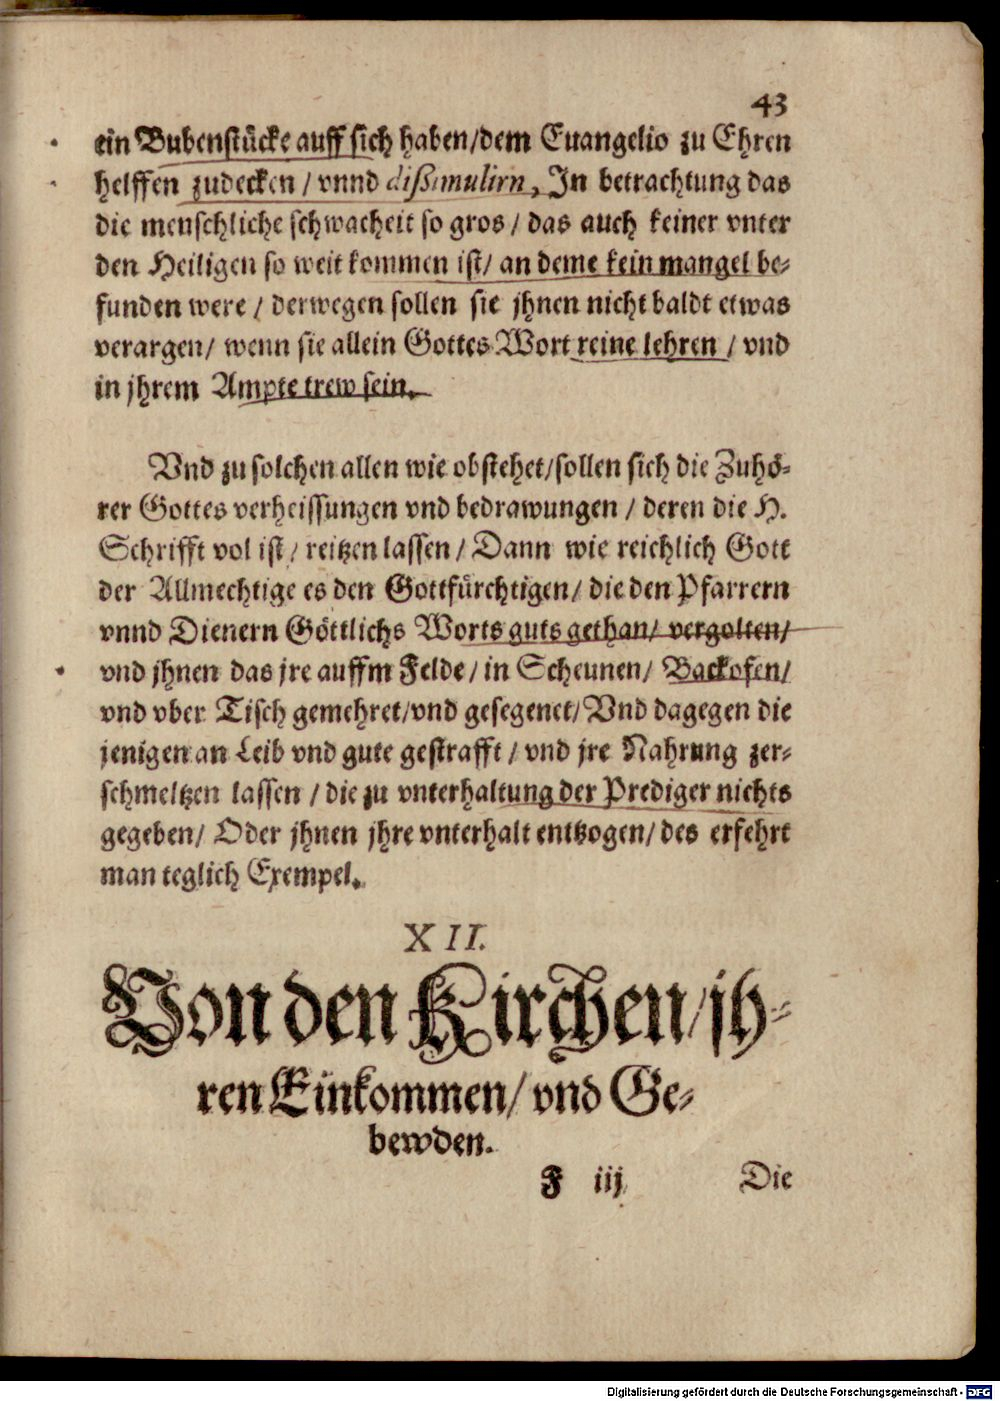 43
ein Bubenstücke auff sich haben/dem Euangelio zu Ehren
helffen zudecken / vnnd dißimulirn, In betrachtung das
die menschliche schwacheit so gros / das auch keiner vnter
den Heiligen so weit kommen ist/ an deme kein mangel be-
funden were / derwegen sollen sie jhnen nicht baldt etwas
verargen/ wenn sie allein Gottes Wort reine lehren / vnd
in jhrem Ampte trew sein.
Vnd zu solchen allen wie obstehet/sollen sich die Zuhö-
rer Gottes verheissungen vnd bedrawungen / deren die H.
Schrifft vol ist / reitzen lassen / Dann wie reichlich Gott
der Allmechtige es den Gottfürchtigen/ die den Pfarrern
vnnd Dienern Göttlichs Worts guts gethan/ vergolten/
vnd jhnen das jre auffm Felde / in Scheunen/ Backofen/
vnd vber Tisch gemehret/vnd gesegenet/ Vnd dagegen die
jenigen an Leib vnd gute gestrafft / vnd jre Nahrung zer-
schmeltzen lassen / die zu vnterhaltung der Prediger nichts
gegeben/ Oder jhnen jhre vnterhalt entzogen/ des erfehrt
man teglich Exempel.
XII.
Von den Kirchen/ jh-
ren Einkommen/ vnd Ge-
bewden.
F iij Die
Digitalisierung gefördert durch die Deutsche Forschungsgemeinschaft - DFG